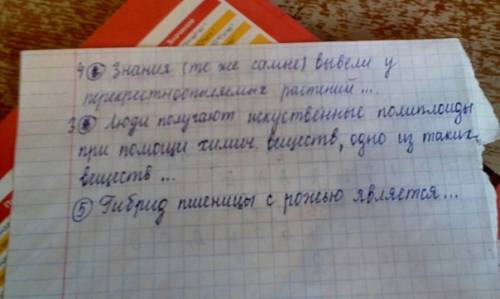 4 Знания (те же самые) вывели у
перекрестноопыляемых растений ...
3 Люди получают искуственные полиплоиды
при помощи химич. веществ, одно из таких
веществ ...
5 Гибрид пшеницы с рожью является ...